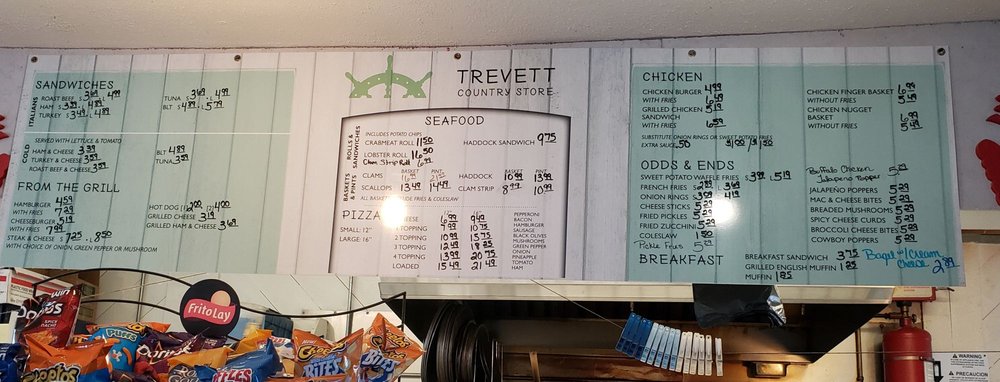 SANDWICHES
ITALIANS
ROAST BEEF 3.69 L 4.99
HAM 3.89 L 4.89
TURKEY 3.49 L 4.89
TUNA 3.69 L 4.99
BLT 4.89 L 5.79
COLD
SERVED WITH LETTUCE & TOMATO
HAM & CHEESE 3.39
TURKEY & CHEESE 3.59
ROAST BEEF & CHEESE 3.59
BLT 4.89
TUNA 3.59
FROM THE GRILL
HAMBURGER 4.59
WITH FRIES 7.29
CHEESEBURGER 5.19
WITH FRIES 7.99
STEAK & CHEESE S 7.25 L 8.50
WITH CHOICE OF ONION, GREEN PEPPER OR MUSHROOM
HOT DOG 2.00 4.00
GRILLED CHEESE 3.19
GRILLED HAM & CHEESE 3.69
TREVETT
COUNTRY STORE
SEAFOOD
ROLLS & SANDWICHES
INCLUDES POTATO CHIPS
CRABMEAT ROLL 11.50
LOBSTER ROLL 16.50
Clam Strip Roll 6.99
HADDOCK SANDWICH 9.75
BASKETS & PINTS
BASKET PINT
CLAMS
SCALLOPS 13.49 14.49
BASKET PINT
HADDOCK 10.99 13.99
CLAM STRIP 8.99 10.99
ALL BASKETS INCLUDE FRIES & COLESLAW
PIZZA
SMALL: 12"
LARGE: 16"
CHEESE 6.99 9.60
1 TOPPING 9.99 10.75
2 TOPPING 10.99 15.75
3 TOPPING 12.49 18.25
4 TOPPING 13.99 20.75
LOADED 15.49 21.49
PEPPERONI
BACON
HAMBURGER
SAUSAGE
BLACK OLIVES
MUSHROOMS
GREEN PEPPER
ONION
PINEAPPLE
TOMATO
HAM
CHICKEN
CHICKEN BURGER 4.99
WITH FRIES 6.49
GRILLED CHICKEN 5.19
SANDWICH
WITH FRIES 6.59
SUBSTITUTE ONION RINGS OR SWEET POTATO FRIES
EXTRA SAUCE .50 $1.00/$1.50
CHICKEN FINGER BASKET 6.99
WITHOUT FRIES 5.49
CHICKEN NUGGET
BASKET 6.99
WITHOUT FRIES 5.49
ODDS & ENDS
SWEET POTATO WAFFLE FRIES S 3.99 L 5.19
FRENCH FRIES S 2.89 L 3.69
ONION RINGS 3.59 L 4.19
CHEESE STICKS 5.29
FRIED PICKLES 5.29
FRIED ZUCCHINI 5.29
COLESLAW 1.50
Pickle Fries 5.29
Buffalo Chicken
Jalapeno Popper 5.29
JALAPEÑO POPPERS 5.29
MAC & CHEESE BITES 5.29
BREADED MUSHROOMS 5.29
SPICY CHEESE CURDS 5.29
BROCCOLI CHEESE BITES 5.29
COWBOY POPPERS 5.29
BREAKFAST
BREAKFAST SANDWICH 3.75
GRILLED ENGLISH MUFFIN 1.25
MUFFIN 1.85
Bagel w/ Cream
Cheese 2.89
FritoLay
WIN
Doritos
Cheetos
PUFFS
Cheetos
BITES
BITES
WARNING
PRECAUCION